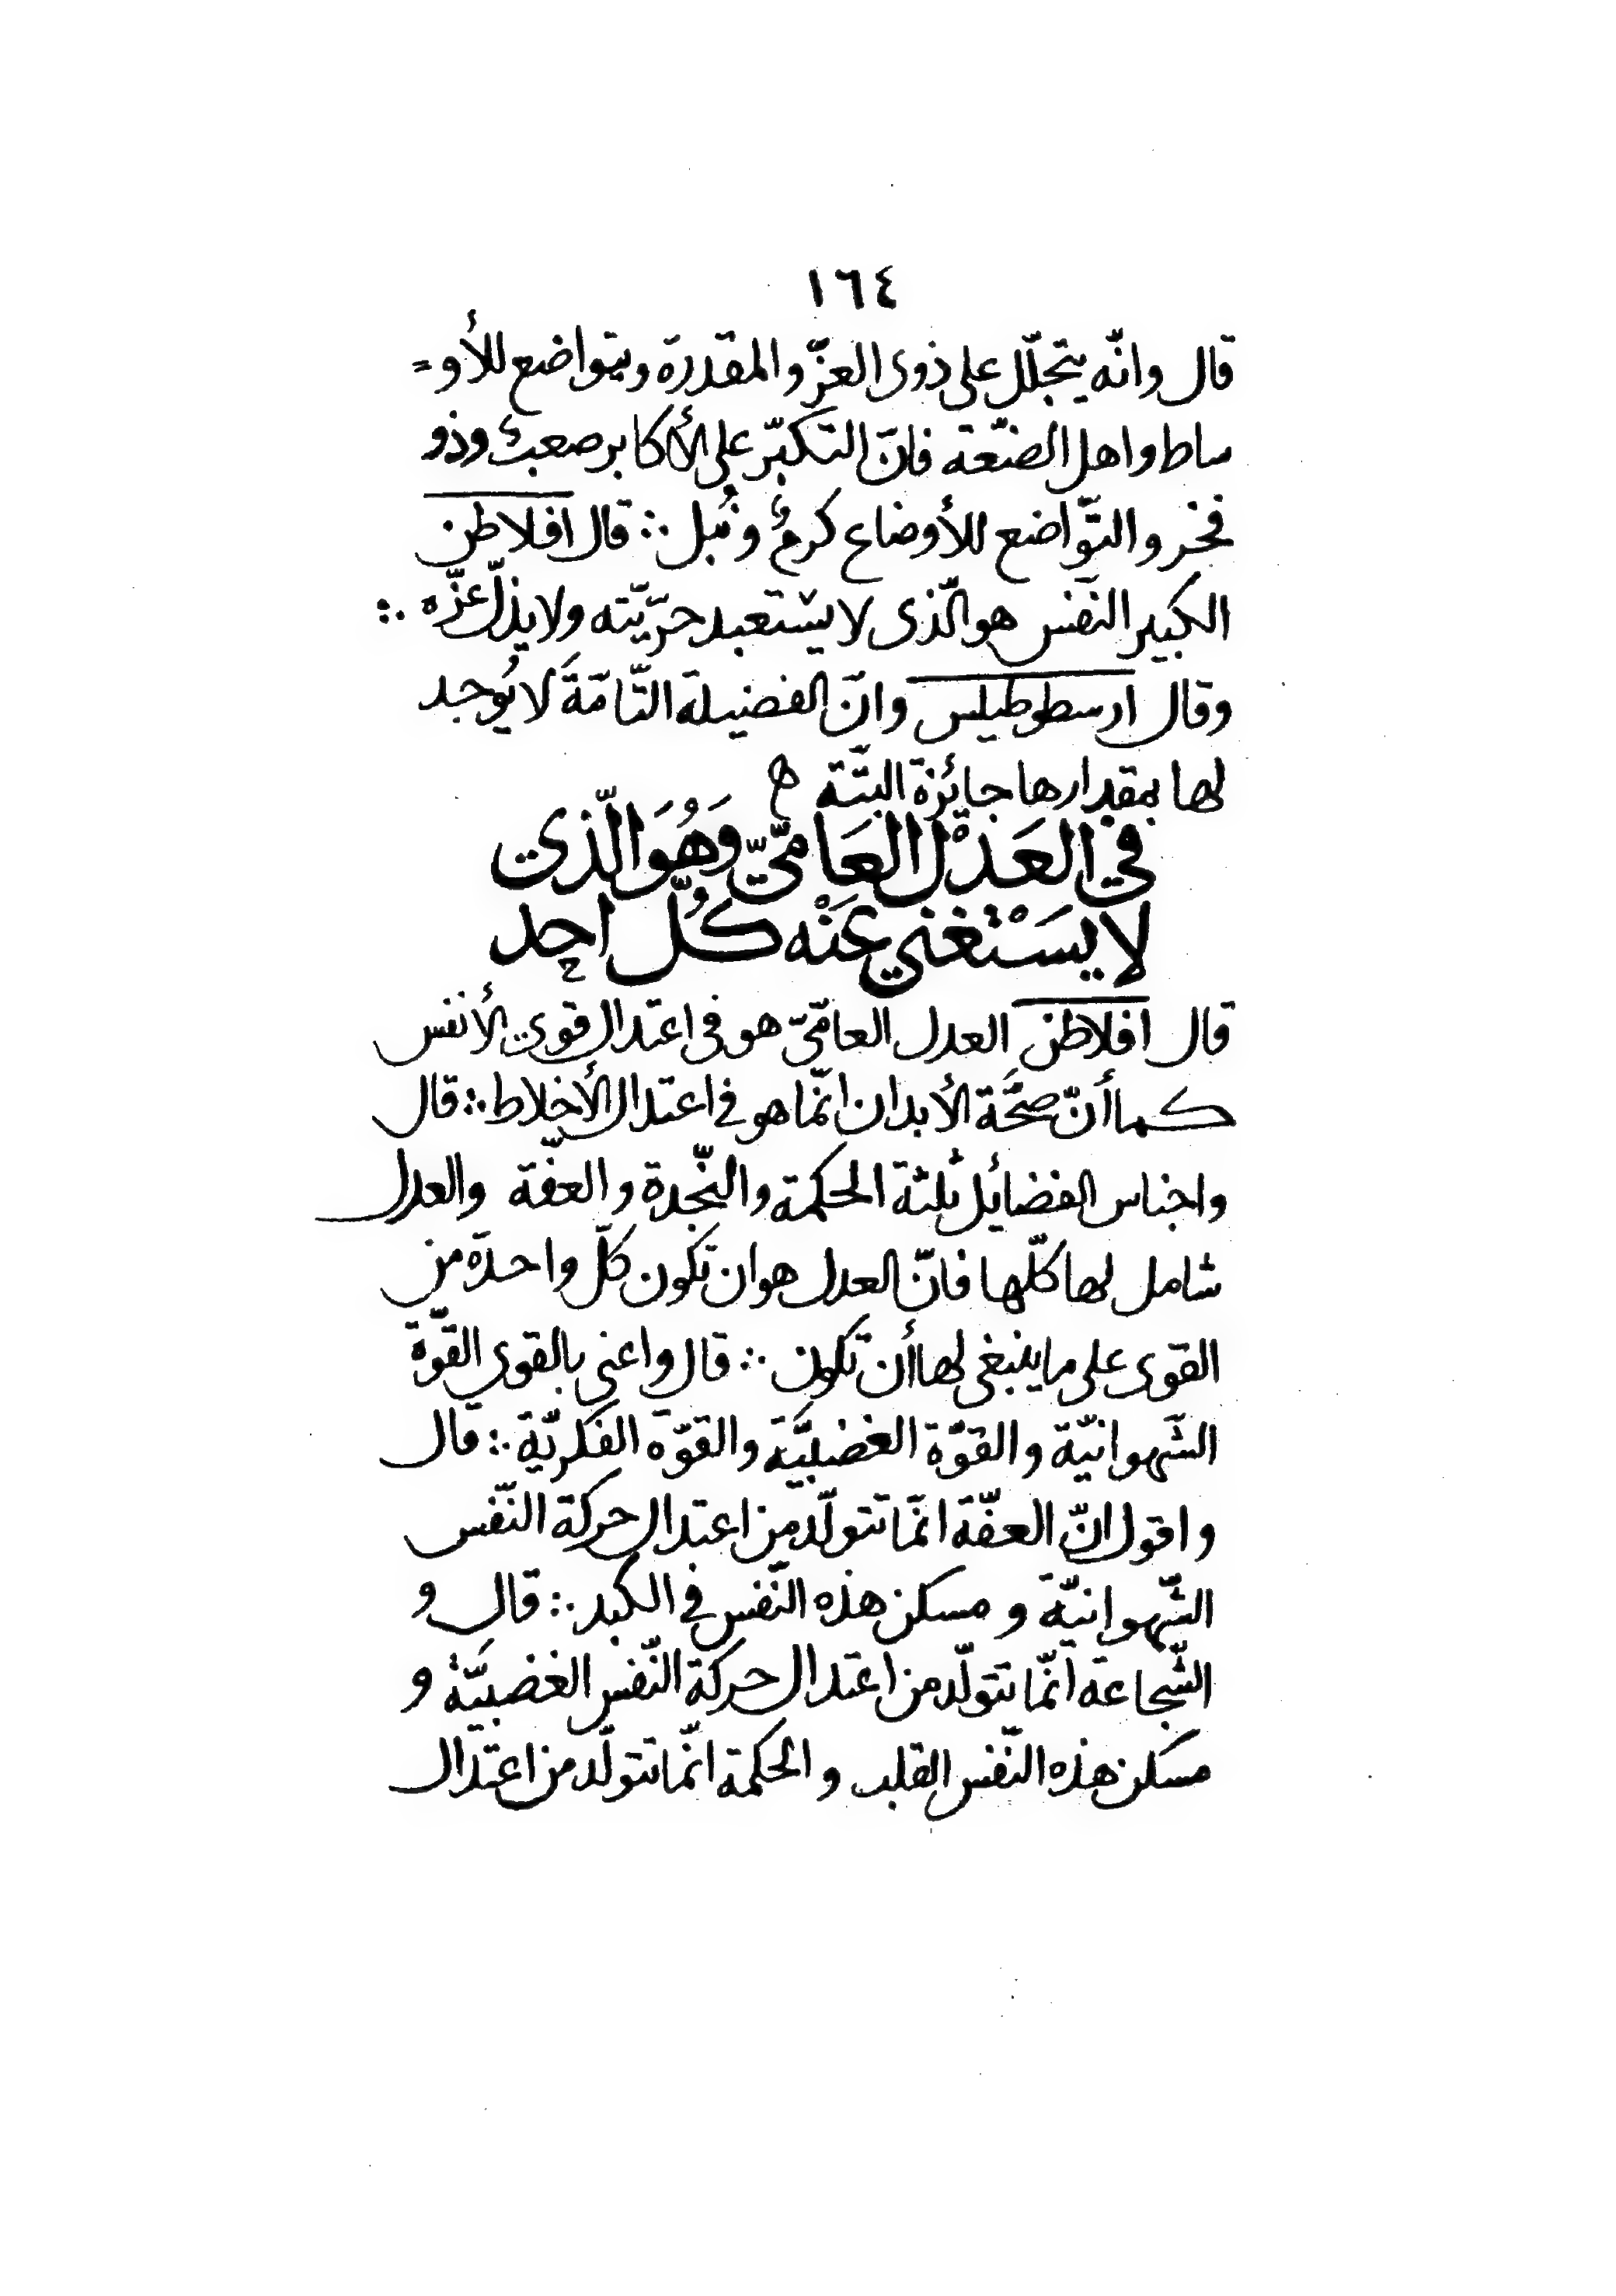 ١٦٤
قال وانّه يتجلّل على ذوى العزّ والمقدرة ويتواضع للأو=
ساط واهل الضّعة فانّ التكبّر على الأكابر صعبٌ وذو
فخر والتّواضع للأوضاع كرمٌ ونُبل ∴ قال افلاطن
الكبير النّفس هو الّذى لا يستعبد حرّيّته ولا يذلّ عزّه ∴
وقال ارسطوطيلس وانّ الفضيلة التّامّة لا يُوجد
لها بمقدارها جائزة البتّة ه
في العَدْل العَامّيّ وَهُوَ الّذي
لا يسَتْغني عَنْه كُلّ احد
قال افلاطن العدل العامّيّ هو فى اعتدال قوي الأنفس
كما أنّ صحّة الأبدان انّما هو في اعتدال الأخلاط ∴ قال
واجناس الفضائل ثلثة الحكمة والنّجدة والعفّة والعدل
شامل لها كلّها فانّ العدل هو ان تكون كلّ واحدة من
القوى على ما ينبغى لها أن تكون ∴ قال واعني بالقوي القوّة
الشّهوانيّة والقوّة الغضبيّة والقوّة الفكريّة ∴ قال
واقول انّ العفّة انّما تتولّد من اعتدال حركة النّفس
الشّهوانيّة و مسكن هذه النّفس في الكبد ∴ قال و
الشّجاعة انّما تتولّد من اعتدال حركة النّفس الغضبيّة و
مسكن هذه النّفس القلب والحكمة انّما تتولّد من اعتدال